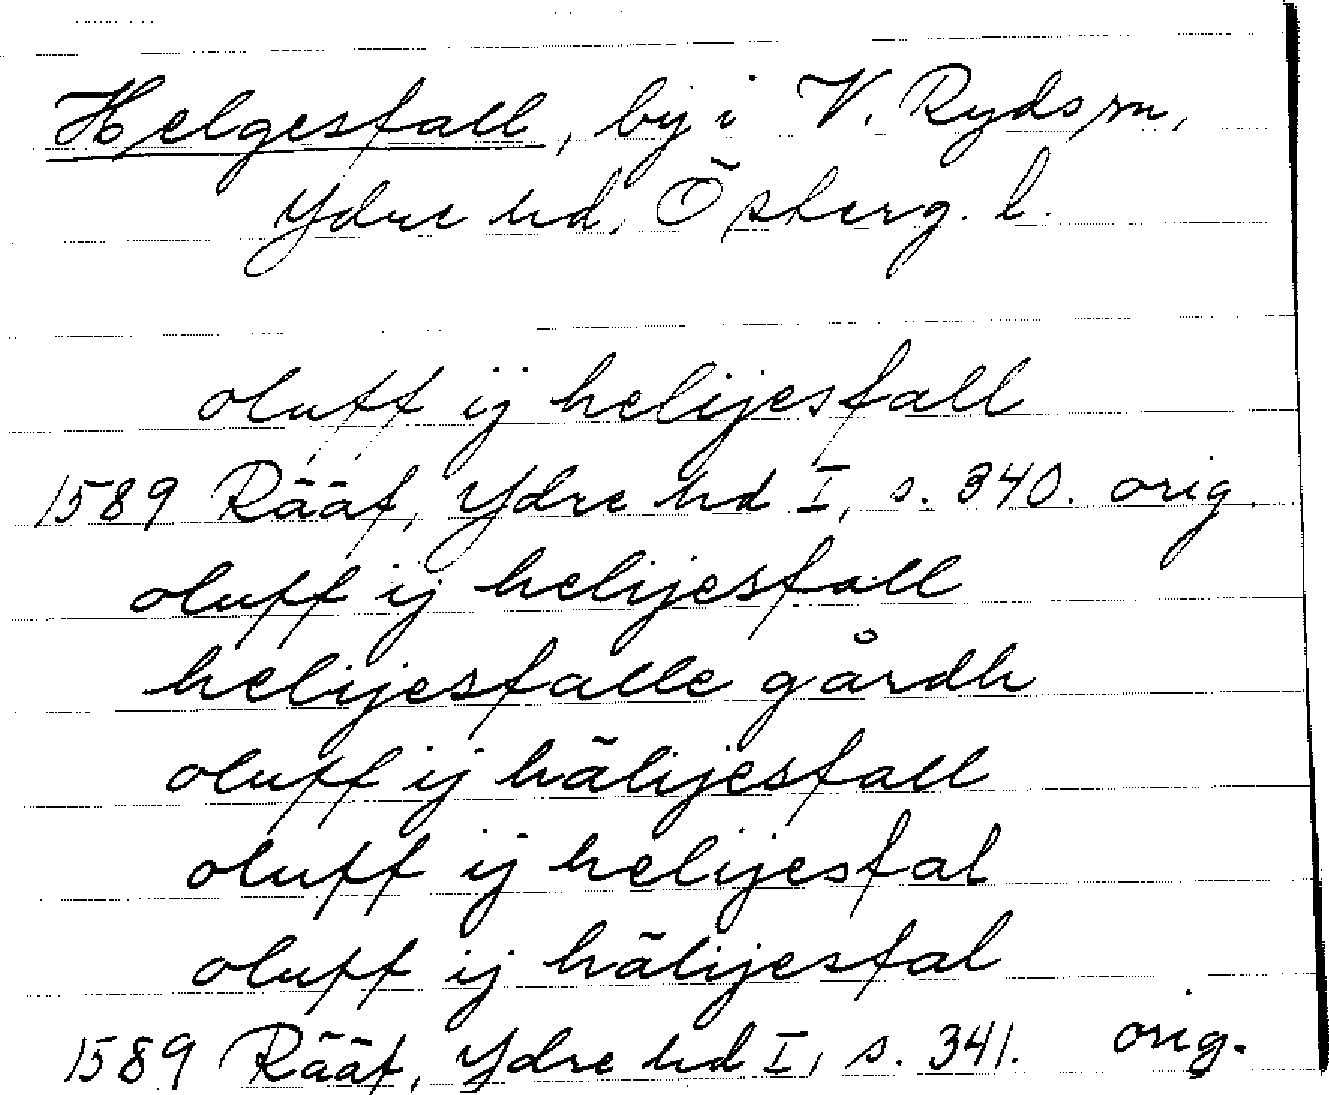 Helgesfall, by i V. Ryds sn,
Ydre hd, Österg. l.
oluff ij helijesfall
1589 Rääf, Ydre hd I, s. 340. orig.
oluff ij helijesfall
helijesfalle gårdh
oluff ij hälijesfall
oluff ij helijesfal
oluff ij hälijesfal
1589 Rääf, Ydre hd I, s. 341. orig.